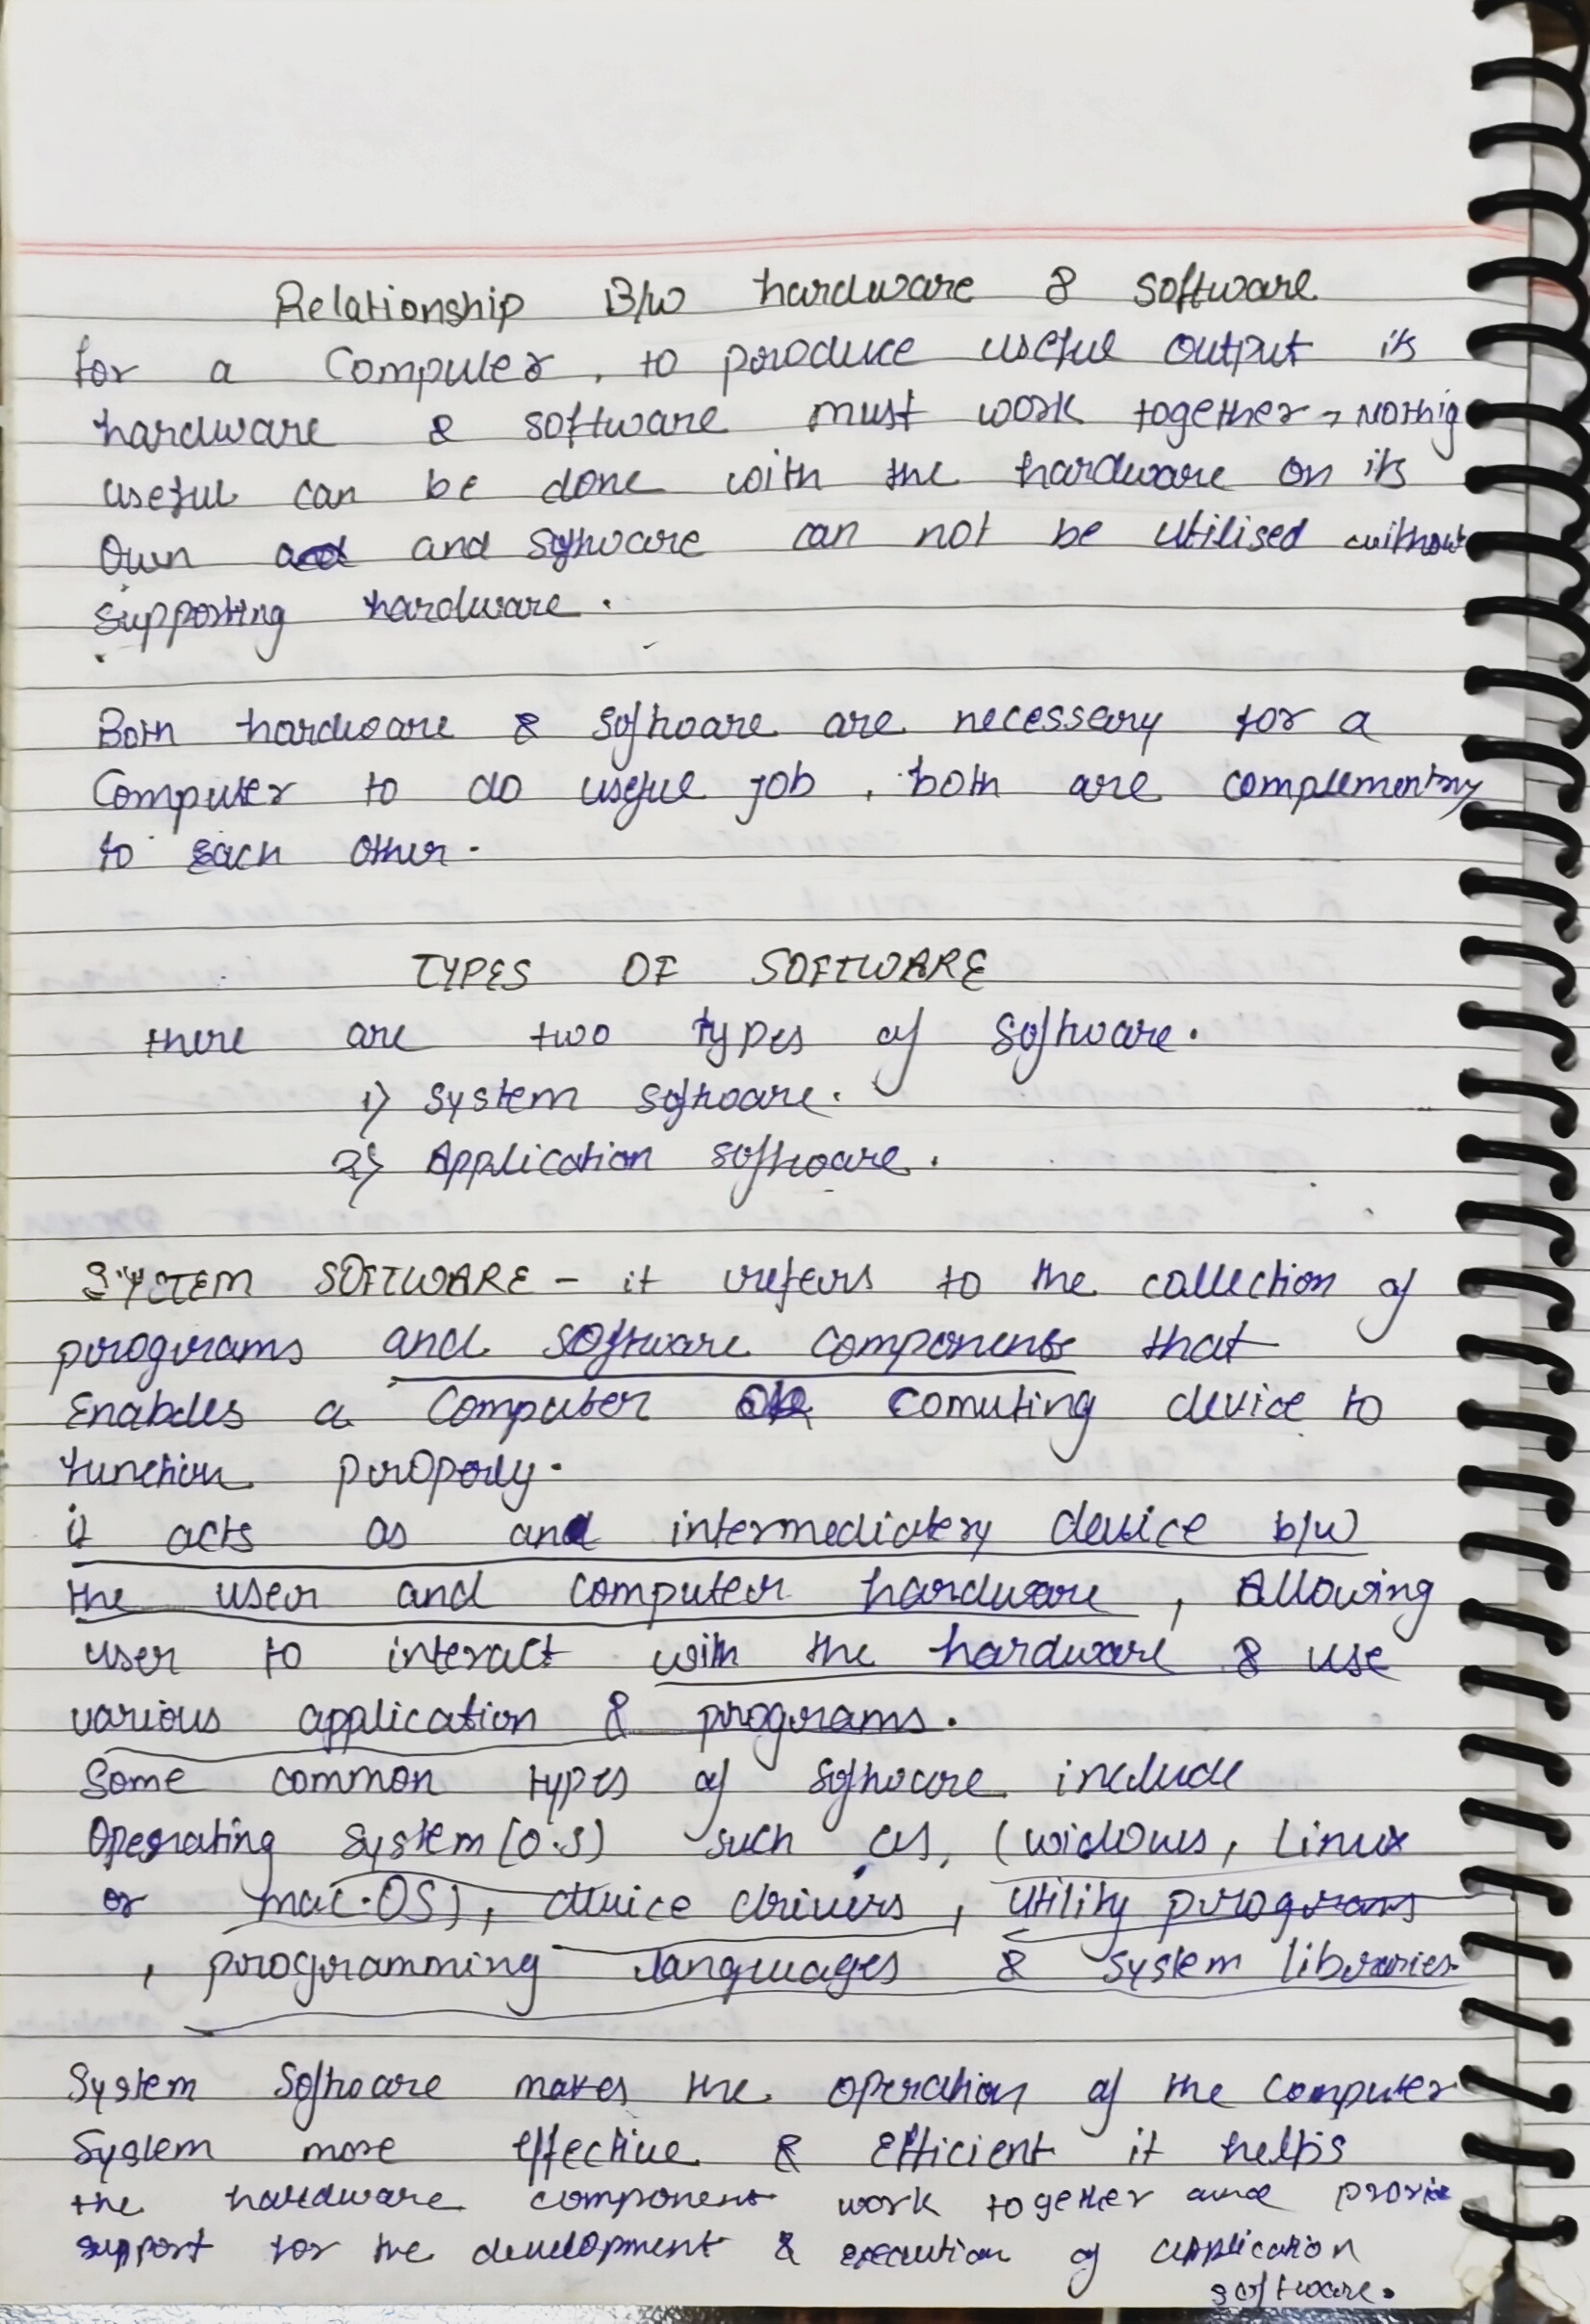 Relationship B/w hardware & software
for a Computer, to produce useful output its
hardware & software must work together, Nothig
useful can be done with the hardware on its
Own and and software can not be utilised without
supporting hardware.
Both hardware & software are necessary for a
Computer to do useful job, both are complementry
to each other.
TYPES OF SOFTWARE
there are two types of software.
1) System software.
2) Application software.
SYSTEM SOFTWARE - it refers to the collection of
programs and software components that
Enables a Computer OR comuting device to
function properly.
it acts as and intermediatery device b/w
the user and computer hardware, Allowing
user to interact with the hardware & use
various application & programs.
Some common types of software include
Operating system [O.S) such as, (widows, Linux
or mac.OS), device drivers, utility programs
, programming languages & system libraries.
System software makes the operation of the computer
System more effective & Efficient it helps
the hardware component work together and
support for the development & execution of application
software.